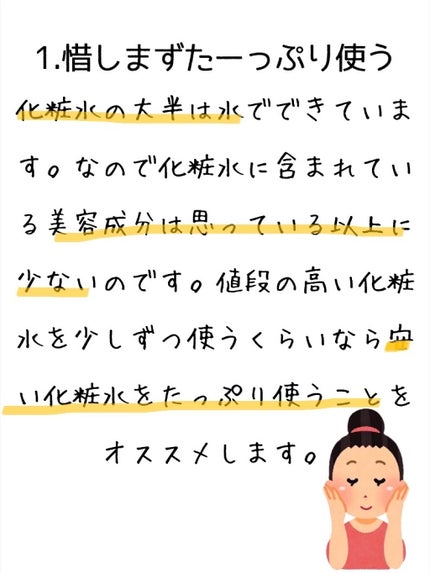 1.惜しまずたーっぷり使う
化粧水の大半は水でできていま
す。なので化粧水に含まれてい
る美容成分は思っている以上に
少ないのです。値段の高い化粧
水を少しずつ使うくらいなら安
い化粧水をたっぷり使うことを
オススメします。